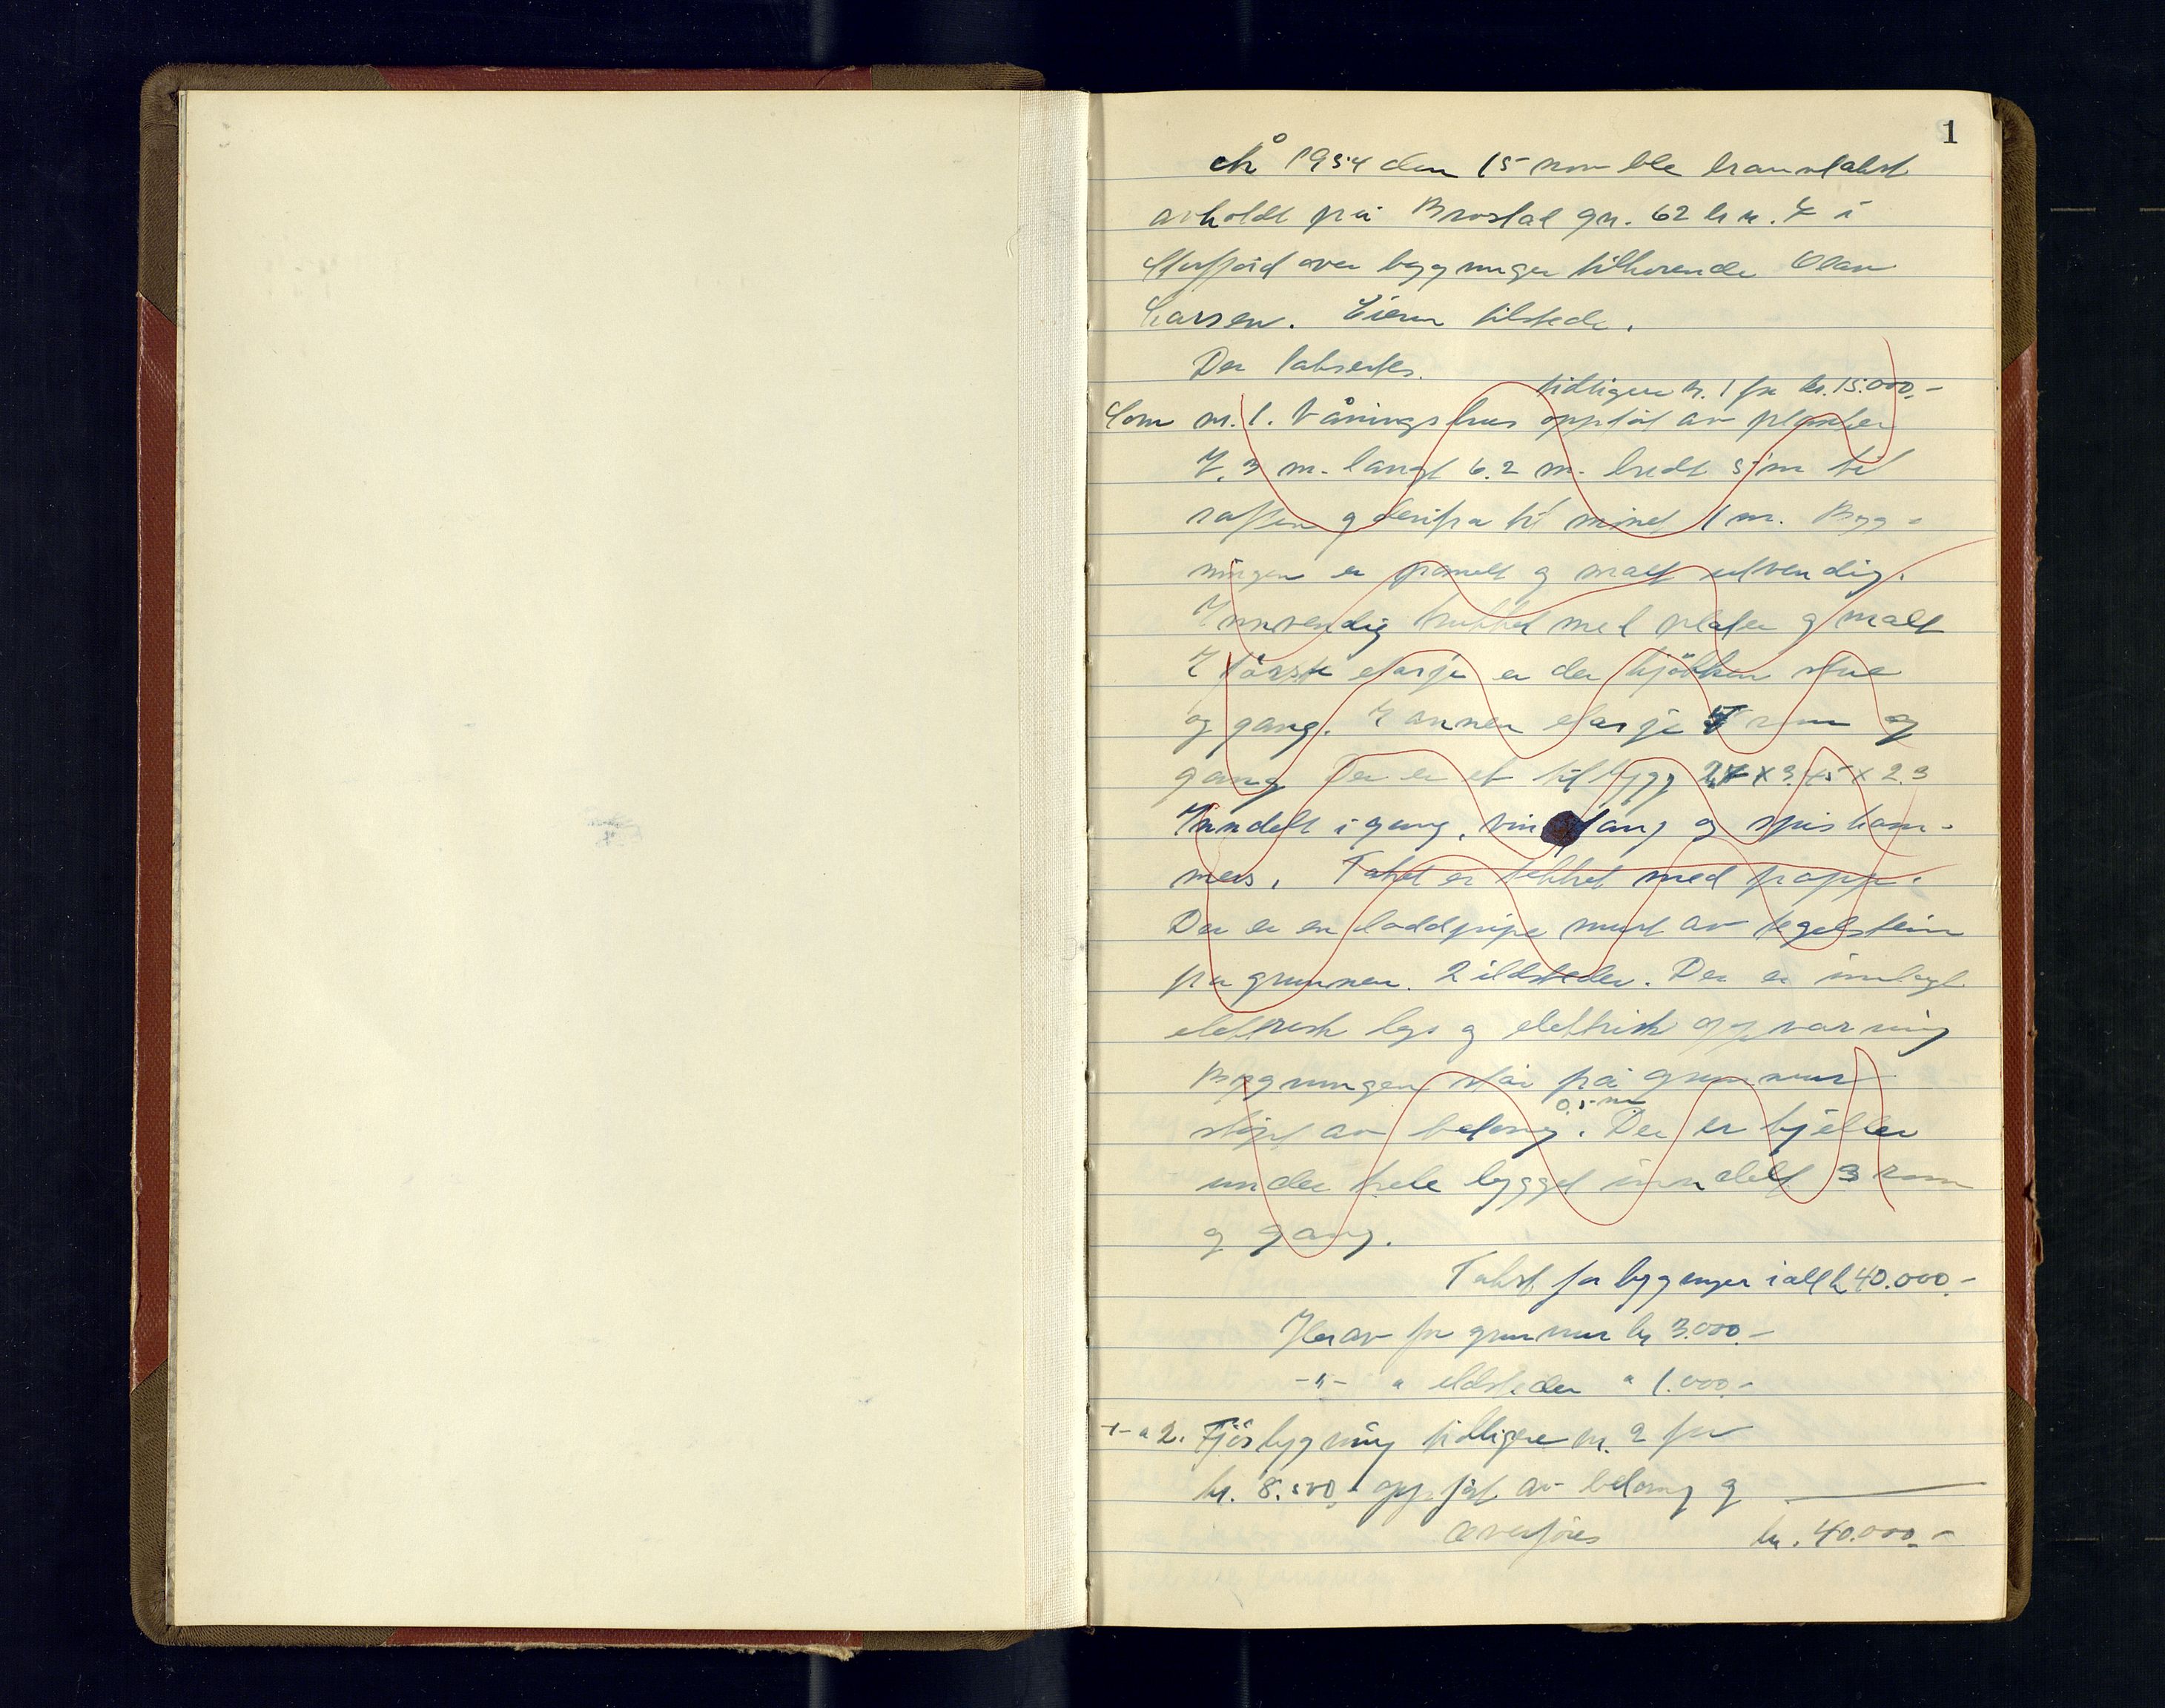 1
År 1954 den 15 nov ble branntakst
avholdt på Brostal gn. 62 br n. 4 i
Storfjord over bygninger tilhørende Olav
Larsen. Eieren tilstede.
Der takseres.
tidligere nr. 1 for kr. 15.000.-
Som nr. 1. Våningshus oppført av planker
7.3 m. langt 6.2 m. bredt 5 m til
raften og derifra til mønet 1 m. Byg-
ningen er panelt og malt utvendig.
Innvendig trukket med plater og malt
I første etasje er der kjøkken stue
og gang. I annen etasje rom og
gang Der er et tilbygg × 3.45 × 2.3
Inndelt i gang, vin fang og spiskam-
mers. Taket er tekket med papp.
Der er en loddpipe murt av tegelstein
fra grunnen. 2 ildsteder. Der er innlagt
elektrisk lys og elektrisk oppvarming
Bygningen står på grunnmur
0,5 m
støpt av betong. Der er kjeller
under hele bygget inndelt 3 rom
og gang.
Takst for bygninger i alt kr 40.000.-
Herav for grunnmur kr 3.000.-
-"- " ildsteder " 1.000.-
-"- " 2. Fjøsbygning tidligere nr. 2 for
kr. 8.500.- oppført av betong og
Overføres kr. 40.000.-